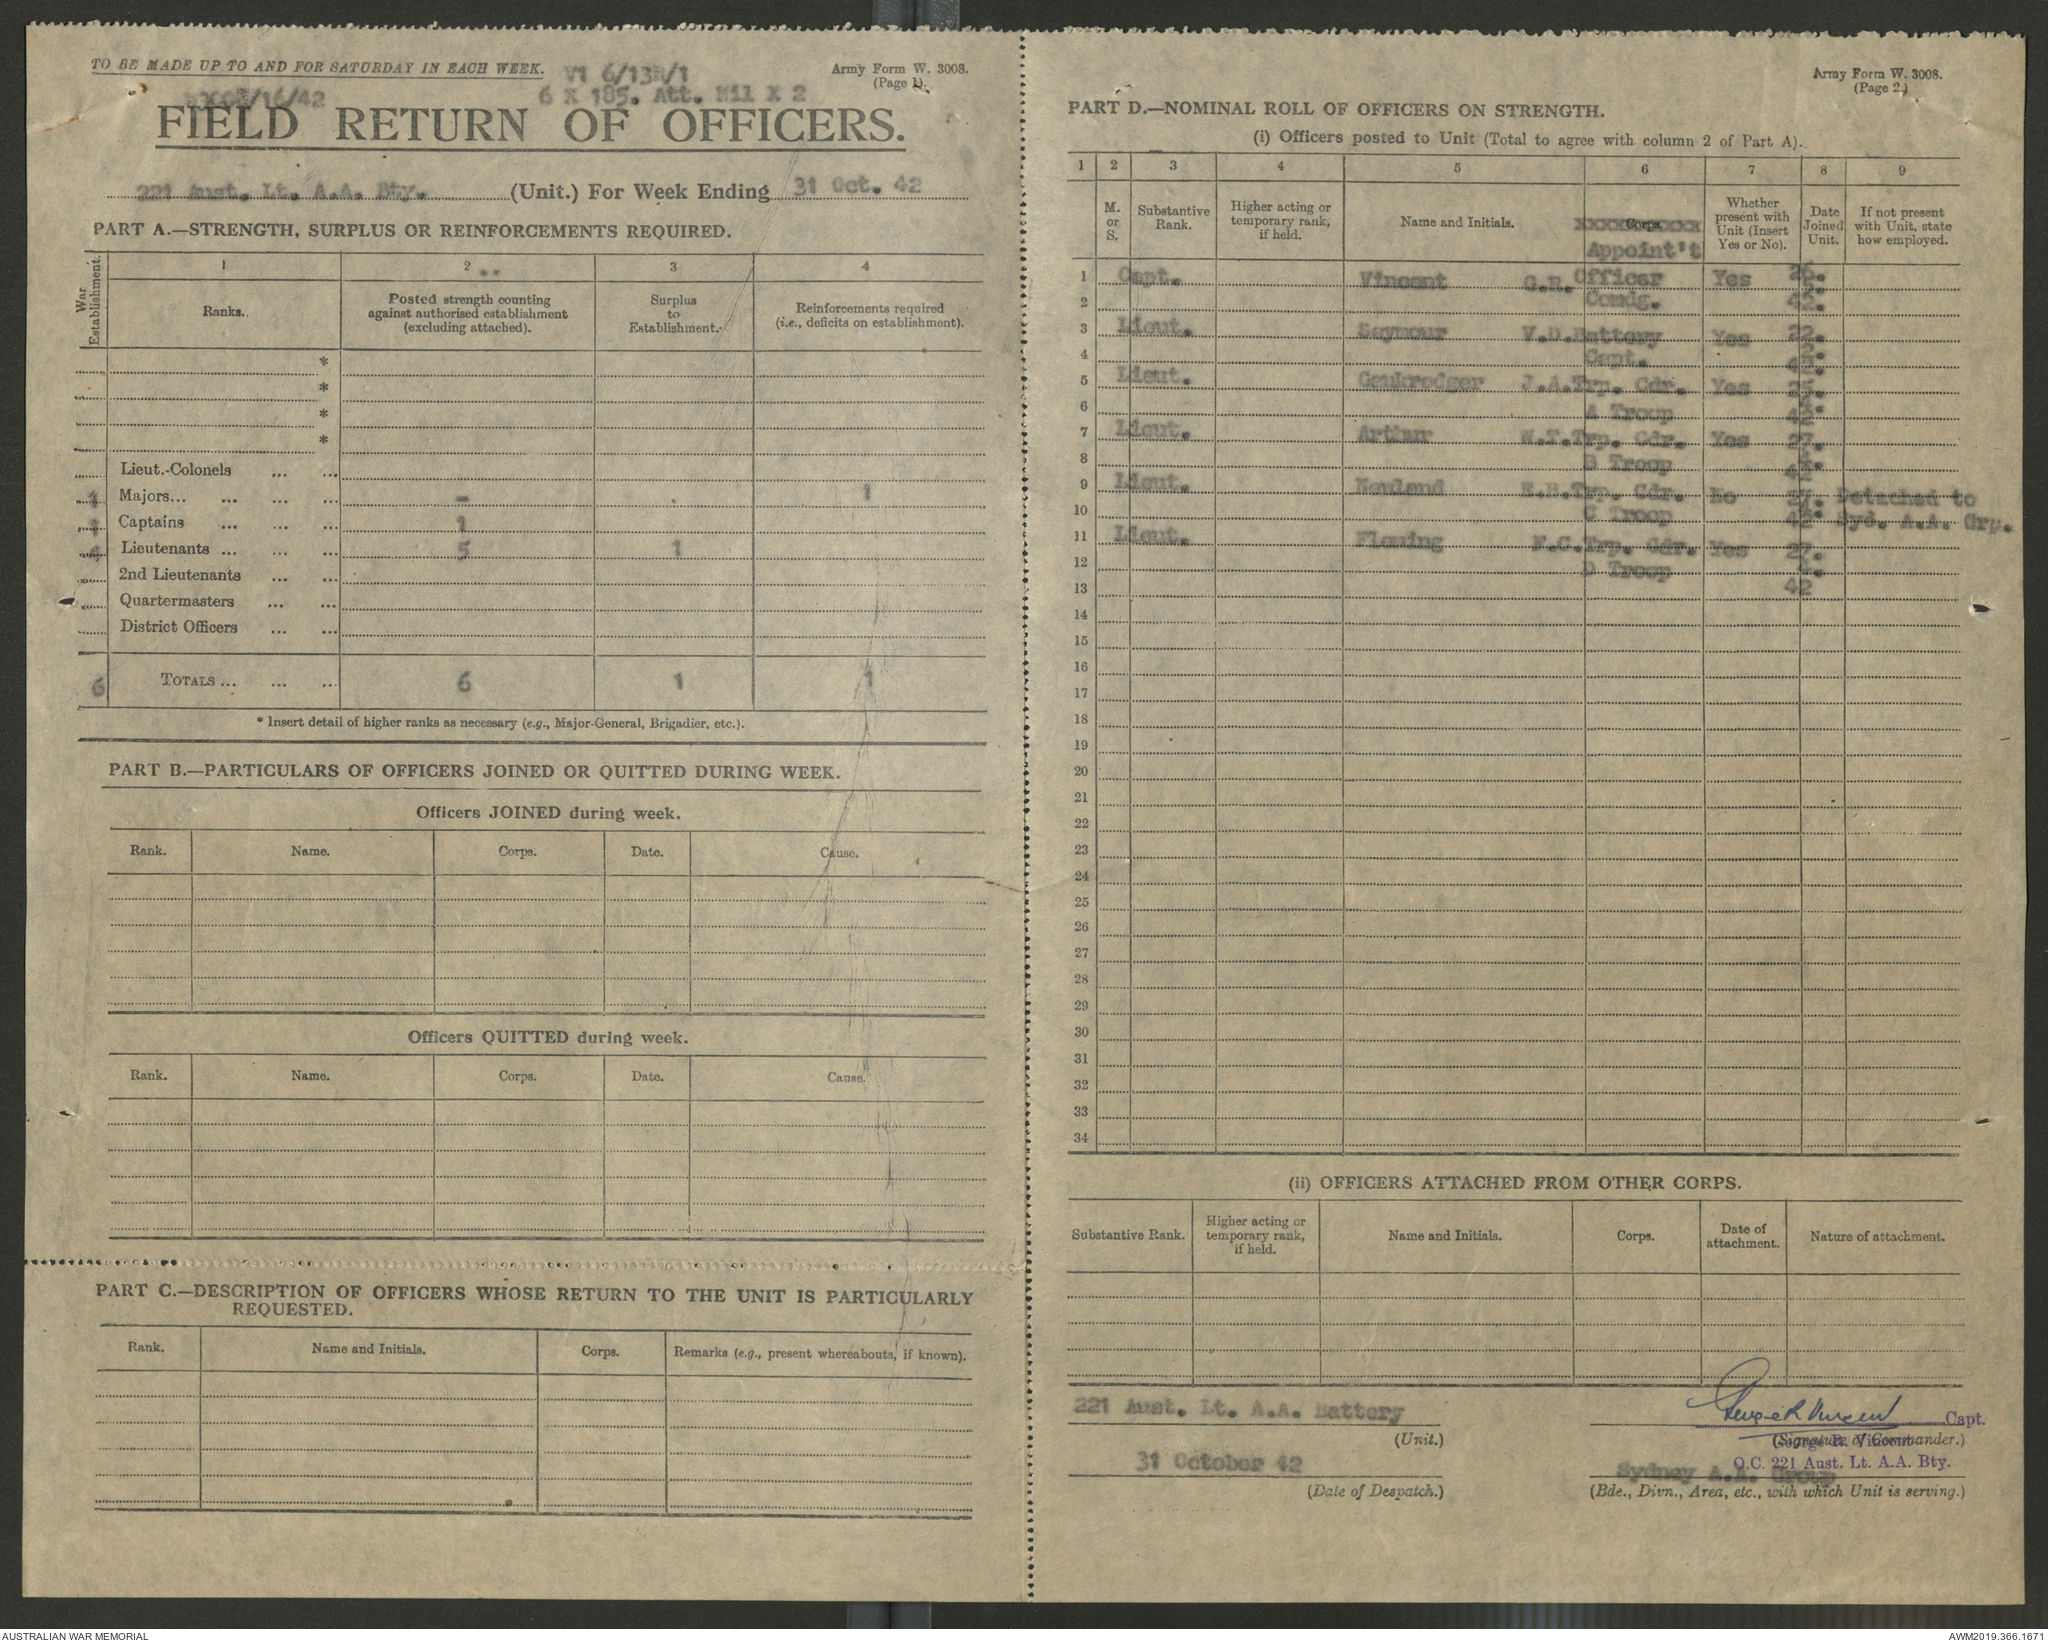 TO BE MADE UP TO AND FOR SATURDAY IN EACH WEEK.
V1 6/13R/1
Army Form W. 3008.
(Page 1).
/16/42
6 X 185. Att. Nil X 2
FIELD RETURN OF OFFICERS.
221 Aust. Lt. A.A. Bty. (Unit.) For Week Ending 31 Oct. 42
PART A.—STRENGTH, SURPLUS OR REINFORCEMENTS REQUIRED.
War Establishment.
1 2 3 4
Ranks.
Posted strength counting against authorised establishment (excluding attached).
Surplus to Establishment.
Reinforcements required (i.e., deficits on establishment).
*
*
*
*
Lieut.-Colonels ... ...
1 Majors... ... ... ... - 1
1 Captains ... ... ... 1
4 Lieutenants ... ... ... 5 1
2nd Lieutenants ... ...
Quartermasters ... ...
District Officers ... ...
6 TOTALS ... ... ... 6 1 1
* Insert detail of higher ranks as necessary (e.g., Major-General, Brigadier, etc.).
PART B.—PARTICULARS OF OFFICERS JOINED OR QUITTED DURING WEEK.
Officers JOINED during week.
Rank. Name. Corps. Date. Cause.
Officers QUITTED during week.
Rank. Name. Corps. Date. Cause.
PART C.—DESCRIPTION OF OFFICERS WHOSE RETURN TO THE UNIT IS PARTICULARLY
REQUESTED.
Rank. Name and Initials. Corps. Remarks (e.g., present whereabouts, if known).
Army Form W. 3008.
(Page 2.)
PART D.—NOMINAL ROLL OF OFFICERS ON STRENGTH.
(i) Officers posted to Unit (Total to agree with column 2 of Part A).
1 2 3 4 5 6 7 8 9
M. or S.
Substantive Rank.
Higher acting or temporary rank, if held.
Name and Initials.
xxxxxCorps.xxxx
Appoint't
Whether present with Unit (Insert Yes or No).
Date Joined Unit.
If not present with Unit, state how employed.
1 Capt. Vincent G.R. Officer Yes 26.
2 Comdg. 42.
3 Lieut. Seymour V.D. Battery Yes 22.
4 Capt. 42.
5 Lieut. Goukrodger J.A. Trp. Cdr. Yes 25.
6 A Troop 42
7 Lieut. Arthur W.T. Trp. Cdr. Yes 27.
8 B Troop 42
9 Lieut. Newlend Trp. Cdr. No 27. Detached to
10 C Troop 42 Syd. A.A. Grp.
11 Lieut. Fleming F.C. Trp. Cdr. Yes 27.
12 D Troop
13 42
14
15
16
17
18
19
20
21
22
23
24
25
26
27
28
29
30
31
32
33
34
(ii) OFFICERS ATTACHED FROM OTHER CORPS.
Substantive Rank.
Higher acting or temporary rank, if held.
Name and Initials.
Corps.
Date of attachment.
Nature of attachment.
221 Aust. Lt. A.A. Battery
(Unit.)
31 October 42
(Date of Despatch.)
George R Vincent Capt.
(Signature of Commander.)
George R. Vincent
O.C. 221 Aust. Lt. A.A. Bty.
Sydney A.A. Group
(Bde., Divn., Area, etc., with which Unit is serving.)
AUSTRALIAN WAR MEMORIAL
AWM2019.366.1671